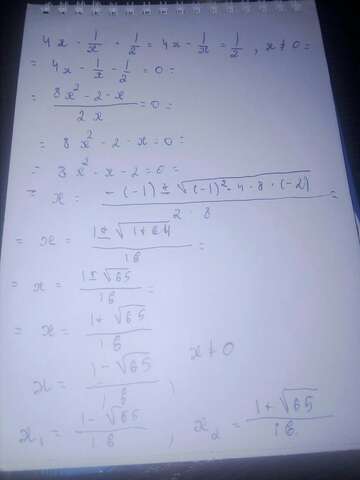 4x - 1/x = 1/2 = 4x - 1/x = 1/2 , x ≠ 0 =
= 4x - 1/x - 1/2 = 0 =
= (8x² - 2 - x)/(2x) = 0 =
= 8x² - 2 - x = 0 =
= 8x² - x - 2 = 0 =
= x = (-(-1) ± √((-1)² - 4 · 8 · (-2)))/(2 · 8) =
= x = (1 ± √(1 + 64))/16 =
= x = (1 ± √65)/16 =
= x = (1 + √65)/16
x = (1 - √65)/16 , x ≠ 0
x₁ = (1 - √65)/16 , x₂ = (1 + √65)/16